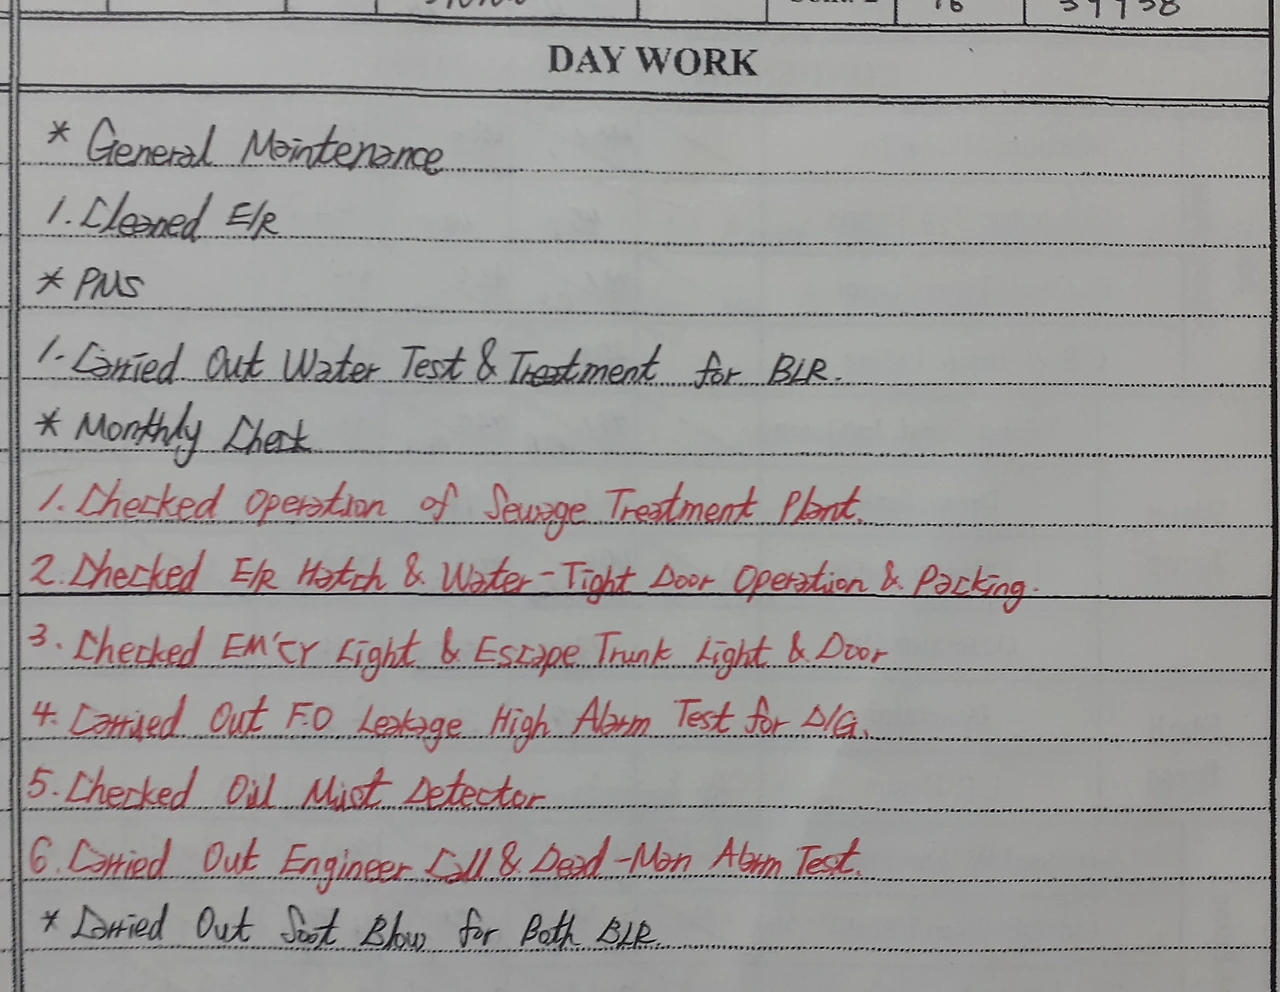 16 39938
DAY WORK
* General Maintenance
1. Cleaned E/R
* PMS
1. Carried Out Water Test & Treatment for BLR.
* Monthly Check
1. Checked Operation of Sewage Treatment Plant.
2. Checked E/R Hatch & Water-Tight Door Operation & Packing.
3. Checked EM'CY Light & Escape Trunk Light & Door
4. Carried Out F.O Leakage High Alarm Test for D/G.
5. Checked Oil Mist Detector
6. Carried Out Engineer Call & Dead-Man Alarm Test.
* Carried Out Soot Blow for Both BLR.